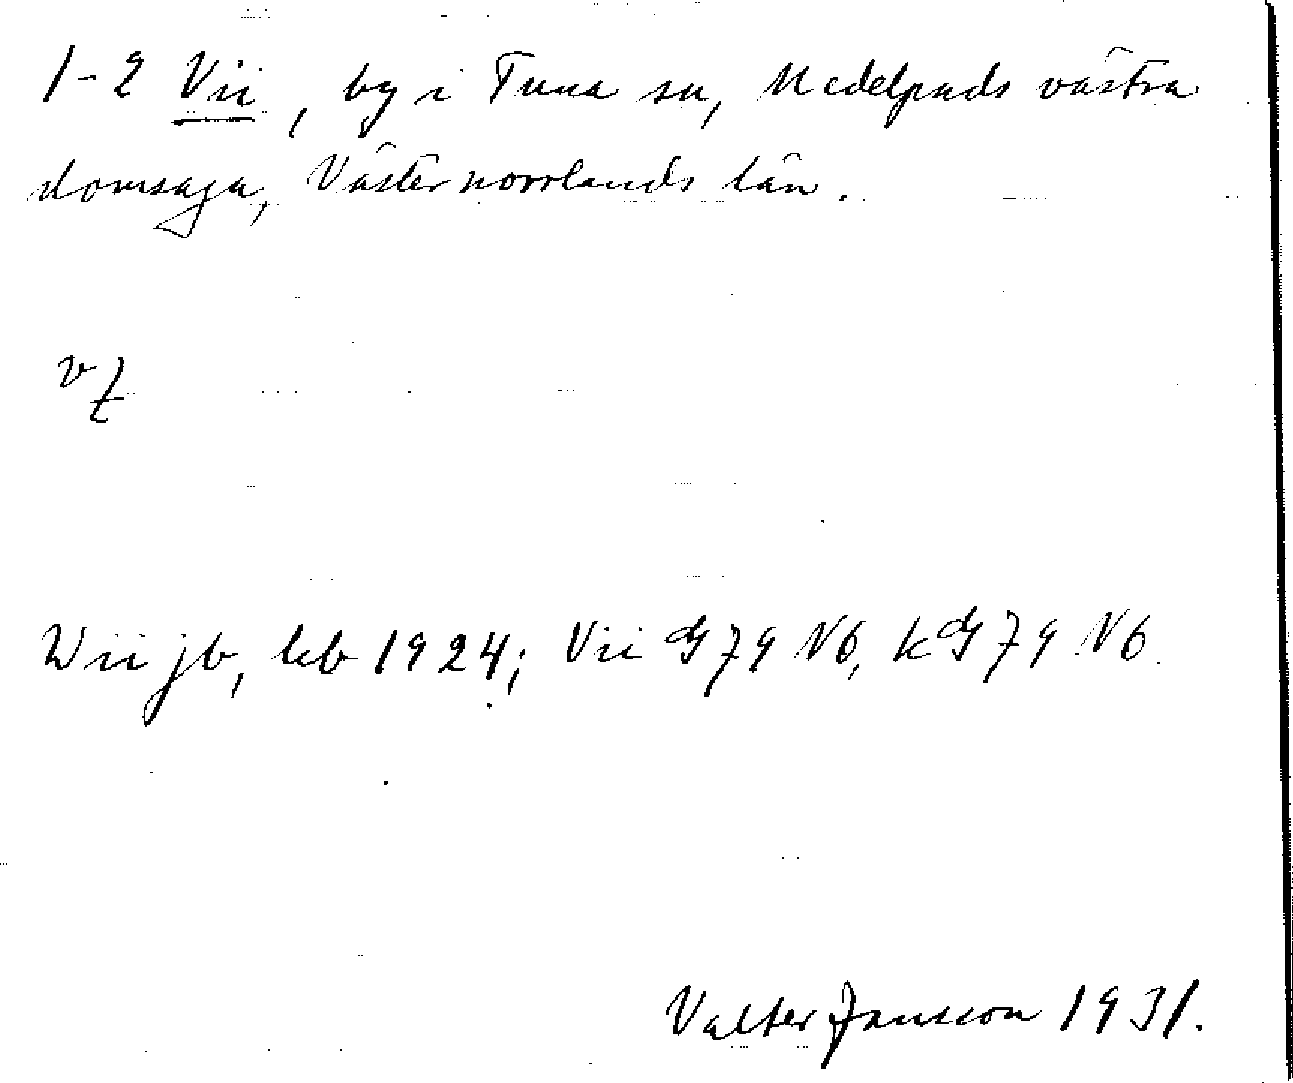 1-2 Vii, by i Tuna sn, Medelpads västra
domsaga, Västernorrlands län.
Wii jb, kb 1924; Vii G 79 N6, k G 79 N6.
Valter Jansson 1931.